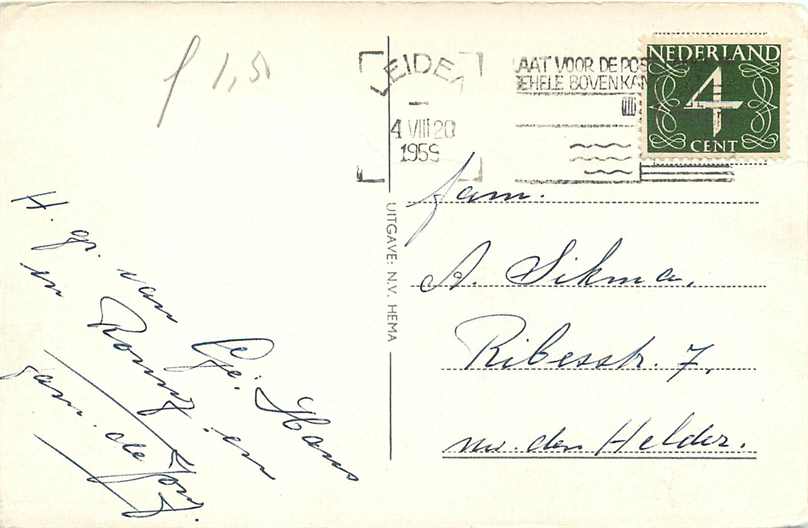 f 1,50
LEIDEN
4 VIII 20
1959
LAAT VOOR DE POS
GEHELE BOVENKAN
NEDERLAND
4
CENT
UITGAVE: N.V. HEMA
fam.
A. Sikma.
Ribesstr. 7.
den Helder.
H. gr. van
Hans
in Ronny en
fam. de Jong.